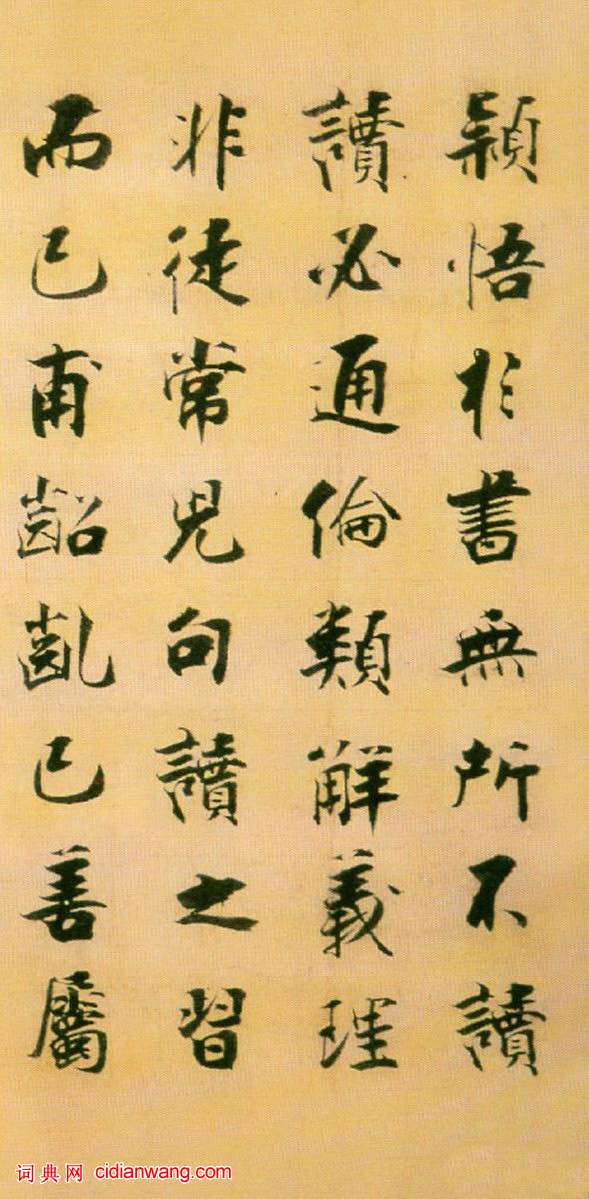 穎悟於書無所不讀
讀必通倫類解義理
非徒常児句讀之習
而已甫齠亂已善屬
词典网 cidianwang.com